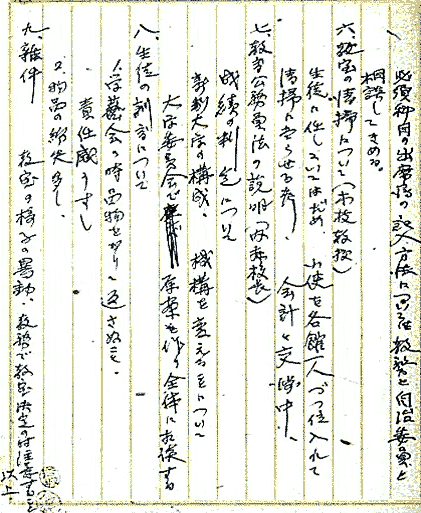 必須科目の出席簿の記入方法については教務と自治委員と
相談してきめる。
六、教室の清掃について（　教授）
生徒に任していてはだめ、小使を各館一人づつ位入れて
清掃に当らせる考、会計と交渉中、
七、教育公務員法の説明（　校長）
成績の判定について
新制大学の構成、機構を変えることについて
大学委員会で原案を作り全体にお諮する
八、生徒の訓育について
1、学藝会の時品物をかり返さぬこと、
責任感うすし
2、物品の紛失多し、
九、雑件　教室の椅子の異動、教務で教室決定の時注意すること
以上